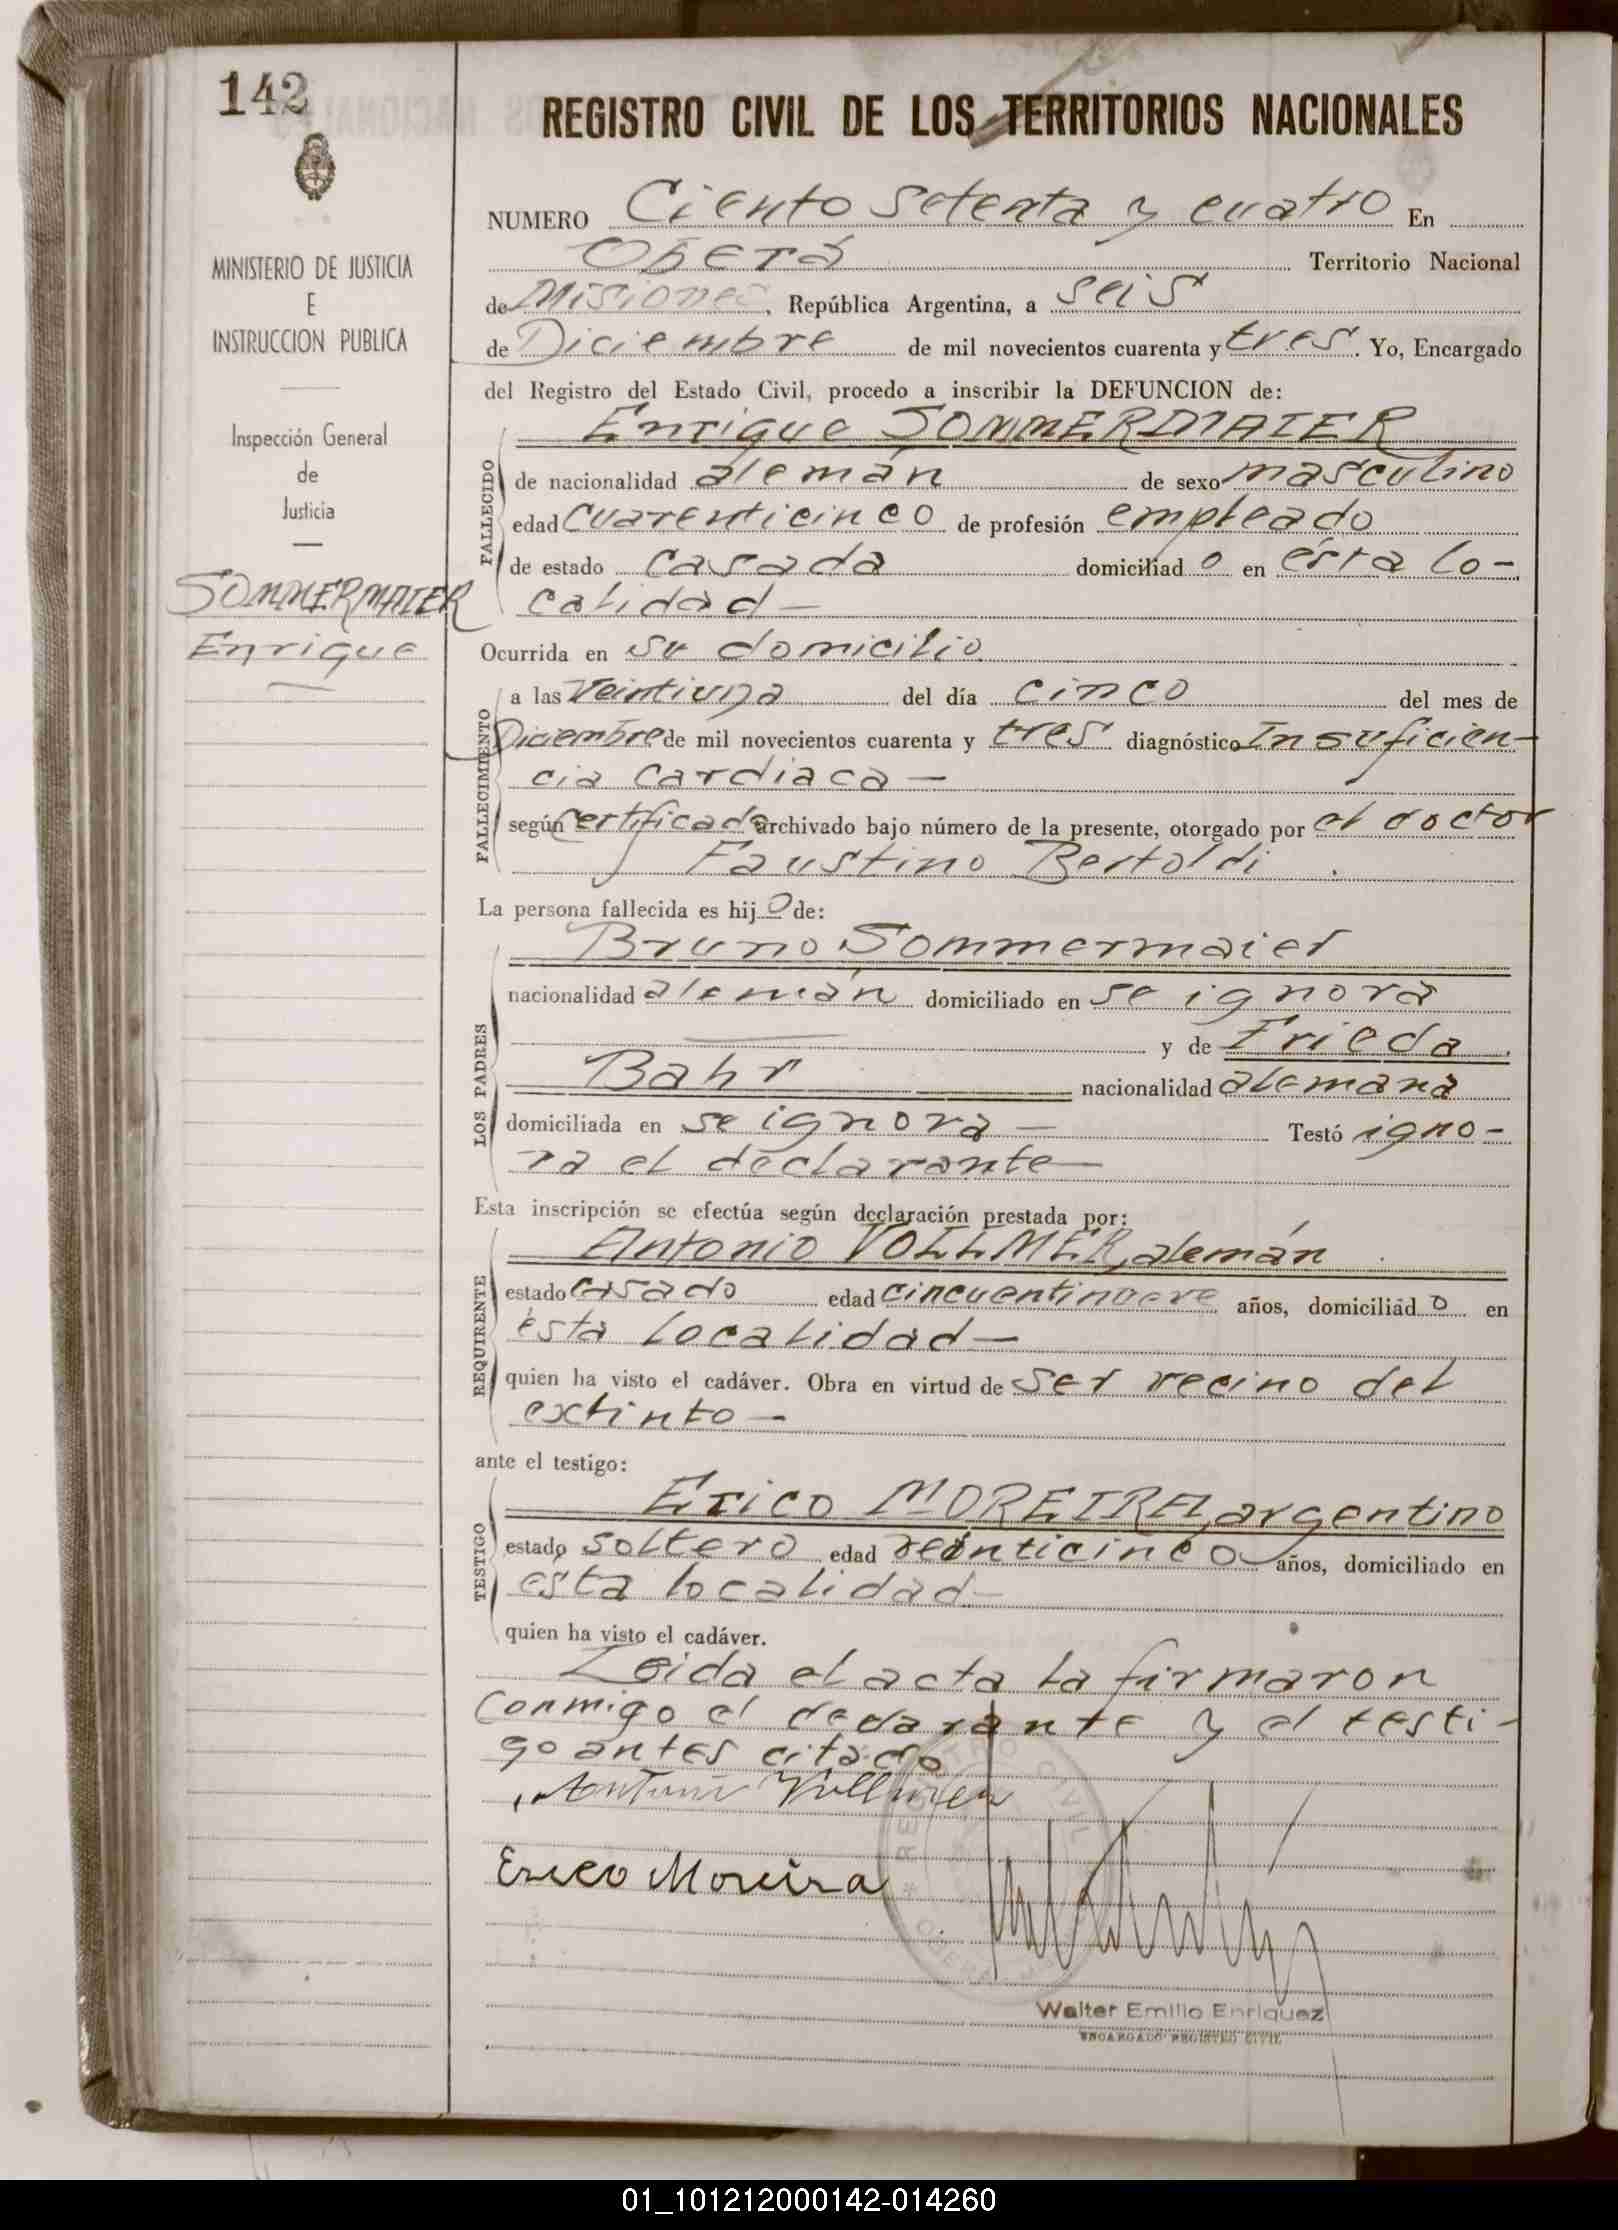 142
MINISTERIO DE JUSTICIA
E
INSTRUCCION PUBLICA
Inspección General
de
Justicia
SOMMERMAIER
Enrique
REGISTRO CIVIL DE LOS TERRITORIOS NACIONALES
NUMERO Ciento setenta y cuatro En
Oberá Territorio Nacional
de Misiones, República Argentina, a seis
de Diciembre de mil novecientos cuarenta y tres. Yo, Encargado
del Registro del Estado Civil, procedo a inscribir la DEFUNCION de:
Enrique SOMMERMAIER
FALLECIDO
de nacionalidad alemán de sexo masculino
edad cuarenticinco de profesión empleado
de estado casada domiciliad o en ésta lo-
calidad—
Ocurrida en su domicilio
FALLECIMIENTO
a las veintiuna del día cinco del mes de
Diciembre de mil novecientos cuarenta y tres diagnóstico Insuficien-
cia cardiaca—
según certificado archivado bajo número de la presente, otorgado por el doctor
Faustino Bertoldi.
La persona fallecida es hij o de:
LOS PADRES
Bruno Sommermaier
nacionalidad alemán domiciliado en se ignora
— y de Frieda
Bahr nacionalidad alemana
domiciliada en se ignora— Testó igno-
ra el declarante—
Esta inscripción se efectúa según declaración prestada por:
REQUIRENTE
Antonio VOLLMER, alemán
estado casado edad cincuentinueve años, domiciliad o en
ésta localidad—
quien ha visto el cadáver. Obra en virtud de ser vecino del
extinto—
ante el testigo:
TESTIGO
Erico MOREIRA, argentino
estado soltero edad veinticinco años, domiciliado en
ésta localidad—
quien ha visto el cadáver.
Leida el acta la firmaron
conmigo el declarante y el testi-
go antes citado
Antonio Vollmer
Erico Moreira
REGISTRO CIVIL
Walter Emilio Enriquez
ENCARGADO REGISTRO CIVIL
01_101212000142-014260